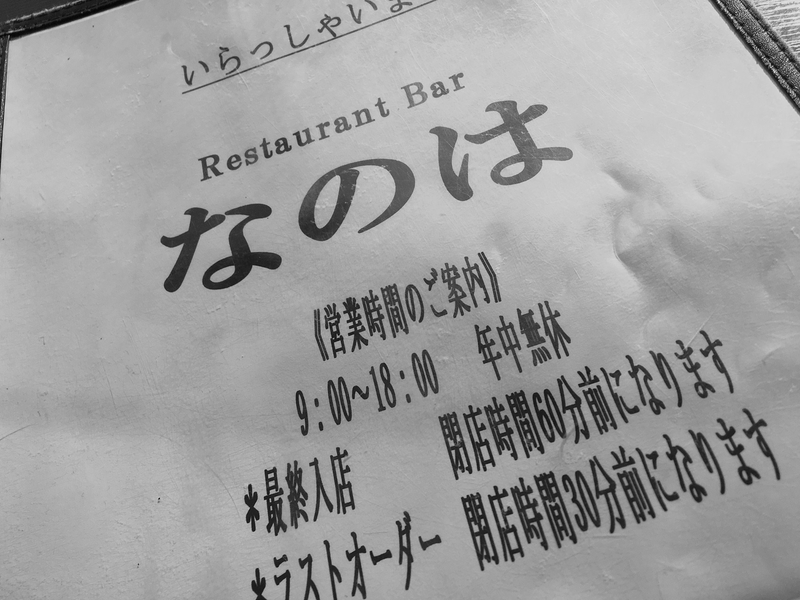 いらっしゃいま
Restaurant Bar
なのは
《営業時間のご案内》
9：00～18：00 年中無休
＊最終入店 閉店時間60分前になります
＊ラストオーダー 閉店時間30分前になります